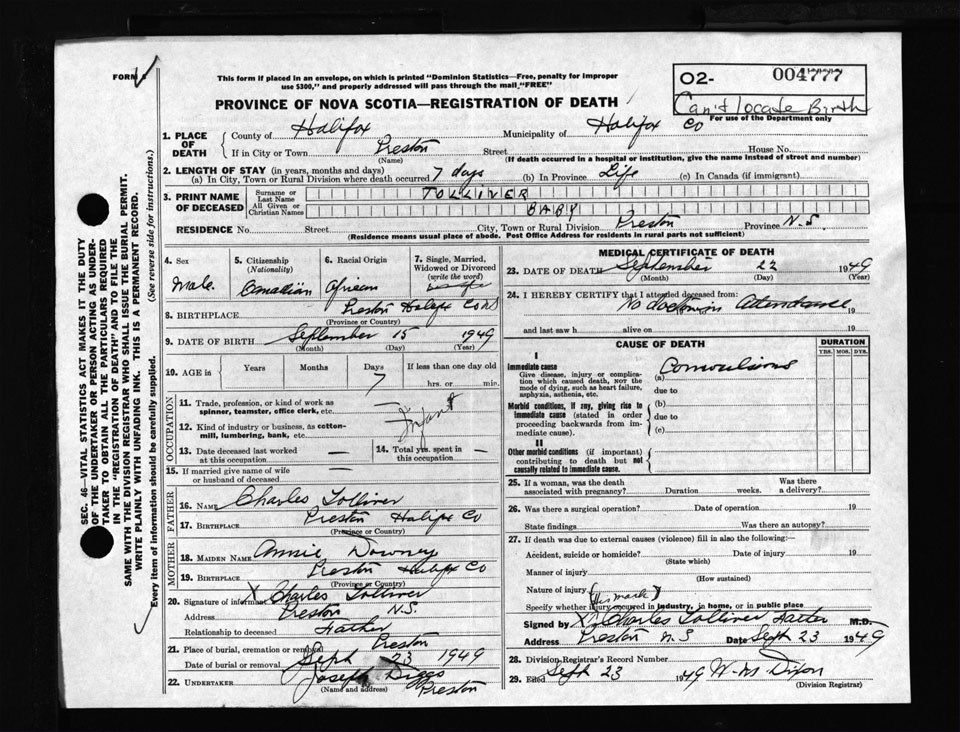 FORM
This form if placed in an envelope, on which is printed "Dominion Statistics—Free, penalty for improper
use $300," and properly addressed will pass through the mail "FREE"
O2-
004777
Can't locate Birth
For use of the Department only
PROVINCE OF NOVA SCOTIA—REGISTRATION OF DEATH
1. PLACE OF DEATH
County of Halifax Municipality of Halifax Co
If in City or Town Preston Street House No.
(Name) (If death occurred in a hospital or institution, give the name instead of street and number)
2. LENGTH OF STAY (in years, months and days)
(a) In City, Town or Rural Division where death occurred 7 days (b) In Province Life (c) In Canada (if immigrant)
3. PRINT NAME OF DECEASED
Surname or Last Name TOLLIVER
All Given or Christian Names BABY
RESIDENCE No. Street City, Town or Rural Division Preston Province N.S.
(Residence means usual place of abode. Post Office Address for residents in rural parts not sufficient)
4. Sex
Male
5. Citizenship
(Nationality)
Canadian
6. Racial Origin
African
7. Single, Married,
Widowed or Divorced
(write the word)
8. BIRTHPLACE Preston Halifx Co NS
(Province or Country)
9. DATE OF BIRTH September 15 1949
(Month) (Day) (Year)
10. AGE in
Years Months Days If less than one day old
7 hrs. or min.
OCCUPATION
11. Trade, profession, or kind of work as
spinner, teamster, office clerk, etc.
Infant
12. Kind of industry or business, as cotton-
mill, lumbering, bank, etc.
13. Date deceased last worked
at this occupation —
14. Total yrs. spent in
this occupation —
15. If married give name of wife
or husband of deceased
FATHER
16. NAME Charles Tolliver
17. BIRTHPLACE Preston Halifx Co
(Province or Country)
MOTHER
18. MAIDEN NAME Annie Downey
19. BIRTHPLACE Preston Halifx Co
(Province or Country)
20. Signature of informant X Charles Tolliver
Address Preston N.S.
Relationship to deceased Father
21. Place of burial, cremation or removal Preston
Date of burial or removal Sept 23 1949
22. UNDERTAKER Joseph Diggs
(Name and address) Preston
MEDICAL CERTIFICATE OF DEATH
23. DATE OF DEATH September 22 1949
(Month) (Day) (Year)
24. I HEREBY CERTIFY that I attended deceased from:
No doctor in attendance 19
and last saw h alive on 19
CAUSE OF DEATH
DURATION
YRS. MOS. DYS.
I
Immediate cause
Give disease, injury or complica-
tion which caused death, NOT the
mode of dying, such as heart failure,
asphyxia, asthenia, etc.
(a) Convulsions
due to
Morbid conditions, if any, giving rise to
immediate cause (stated in order
proceeding backwards from im-
mediate cause).
(b)
due to
(c)
II
Other morbid conditions (if important)
contributing to death but not
causally related to immediate cause.
25. If a woman, was the death
associated with pregnancy? Duration weeks. Was there
a delivery?
26. Was there a surgical operation? Date of operation 19
State findings Was there an autopsy?
27. If death was due to external causes (violence) fill in also the following:—
Accident, suicide or homicide? Date of injury 19
(State which)
Manner of injury
(How sustained)
Nature of injury
(His mark)
Specify whether injury occurred in industry, in home, or in public place
Signed by X Charles Tolliver M.D.
Address Preston N.S Date Sept 23 1949
28. Division Registrar's Record Number
29. Filed Sept 23 1949 Dixon
(Division Registrar)
SEC. 46—VITAL STATISTICS ACT MAKES IT THE DUTY
OF THE UNDERTAKER OR PERSON ACTING AS UNDER-
TAKER TO OBTAIN ALL THE PARTICULARS REQUIRED
IN THE "REGISTRATION OF DEATH" AND TO FILE THE
SAME WITH THE DIVISION REGISTRAR WHO SHALL ISSUE THE BURIAL PERMIT.
WRITE PLAINLY WITH UNFADING INK. THIS IS A PERMANENT RECORD.
Every item of information should be carefully supplied. (See reverse side for instructions.)